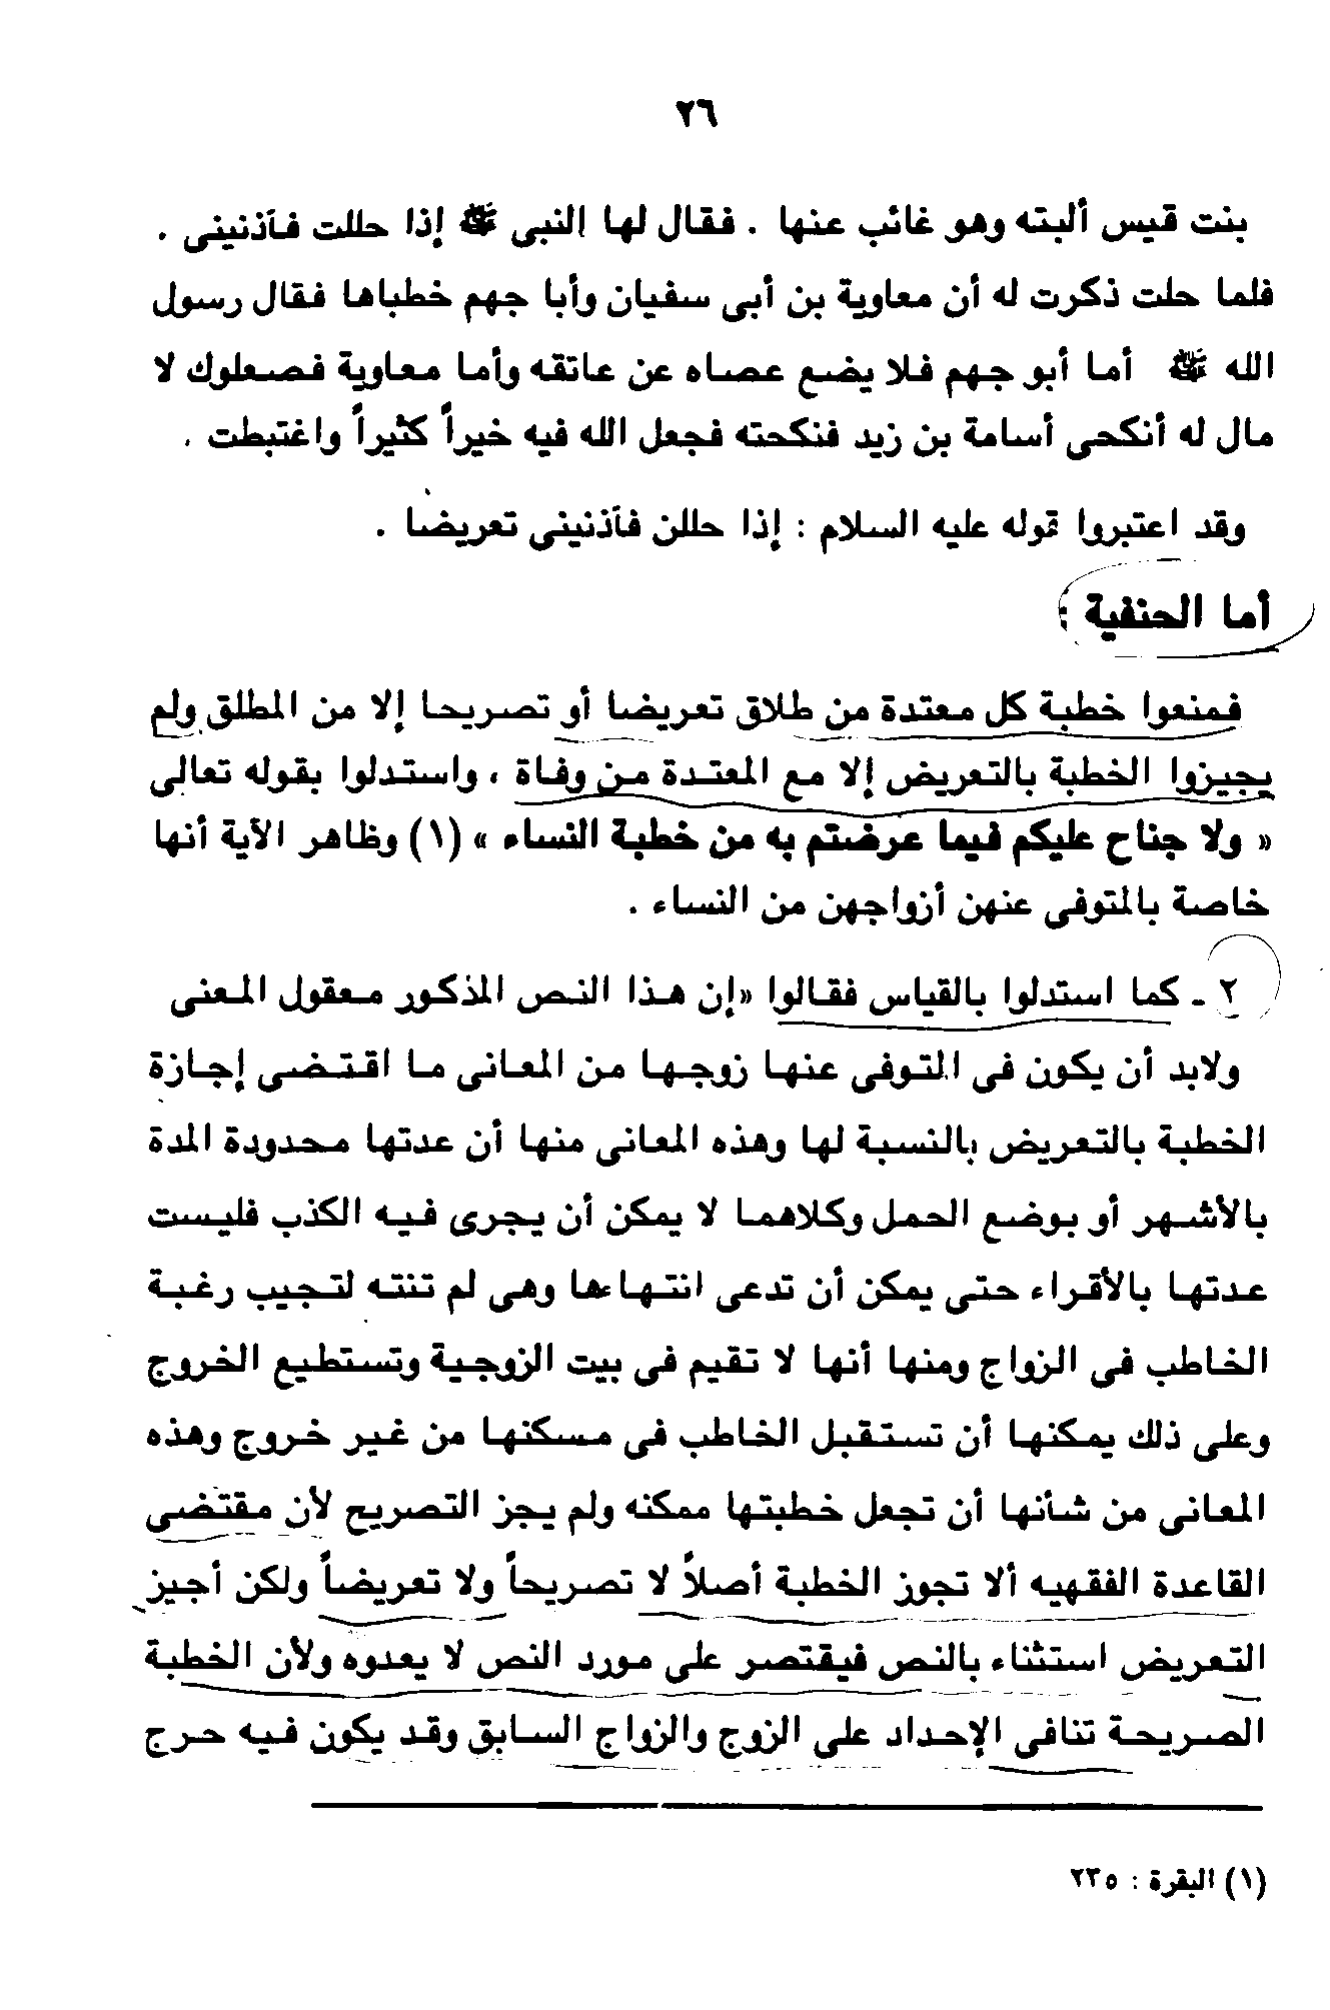 ٢٦
بنت قيس ألبته وهو غائب عنها . فقال لها النبى ﷺ إذا حللت فآذنينى .
فلما حلت ذكرت له أن معاوية بن أبى سفيان وأبا جهم خطباها فقال رسول
الله ﷺ أما أبو جهم فلا يضع عصاه عن عاتقه وأما معاوية فصعلوك لا
مال له أنكحى أسامة بن زيد فنكحته فجعل الله فيه خيراً كثيراً واغتبطت .
وقد اعتبروا قوله عليه السلام : إذا حللن فآذنينى تعريضا .
أما الحنفية :
فمنعوا خطبة كل معتدة من طلاق تعريضا أو تصريحا إلا من المطلق ولم
يجيزوا الخطبة بالتعريض إلا مع المعتدة من وفاة ، واستدلوا بقوله تعالى
« ولا جناح عليكم فيما عرضتم به من خطبة النساء » (١) وظاهر الآية أنها
خاصة بالمتوفى عنهن أزواجهن من النساء .
٢ - كما استدلوا بالقياس فقالوا «إن هذا النص المذكور معقول المعنى
ولابد أن يكون فى المتوفى عنها زوجها من المعانى ما اقتضى إجازة
الخطبة بالتعريض بالنسبة لها وهذه المعانى منها أن عدتها محدودة المدة
بالأشهر أو بوضع الحمل وكلاهما لا يمكن أن يجرى فيه الكذب فليست
عدتها بالأقراء حتى يمكن أن تدعى انتهاءها وهى لم تنته لتجيب رغبة
الخاطب فى الزواج ومنها أنها لا تقيم فى بيت الزوجية وتستطيع الخروج
وعلى ذلك يمكنها أن تستقبل الخاطب فى مسكنها من غير خروج وهذه
المعانى من شأنها أن تجعل خطبتها ممكنه ولم يجز التصريح لأن مقتضى
القاعدة الفقهيه ألا تجوز الخطبة أصلاً لا تصريحاً ولا تعريضاً ولكن أجيز
التعريض استثناء بالنص فيقتصر على مورد النص لا يعدوه ولأن الخطبة
الصريحة تنافى الإحداد على الزوج والزواج السابق وقد يكون فيه حرج
(١) البقرة : ٢٣٥